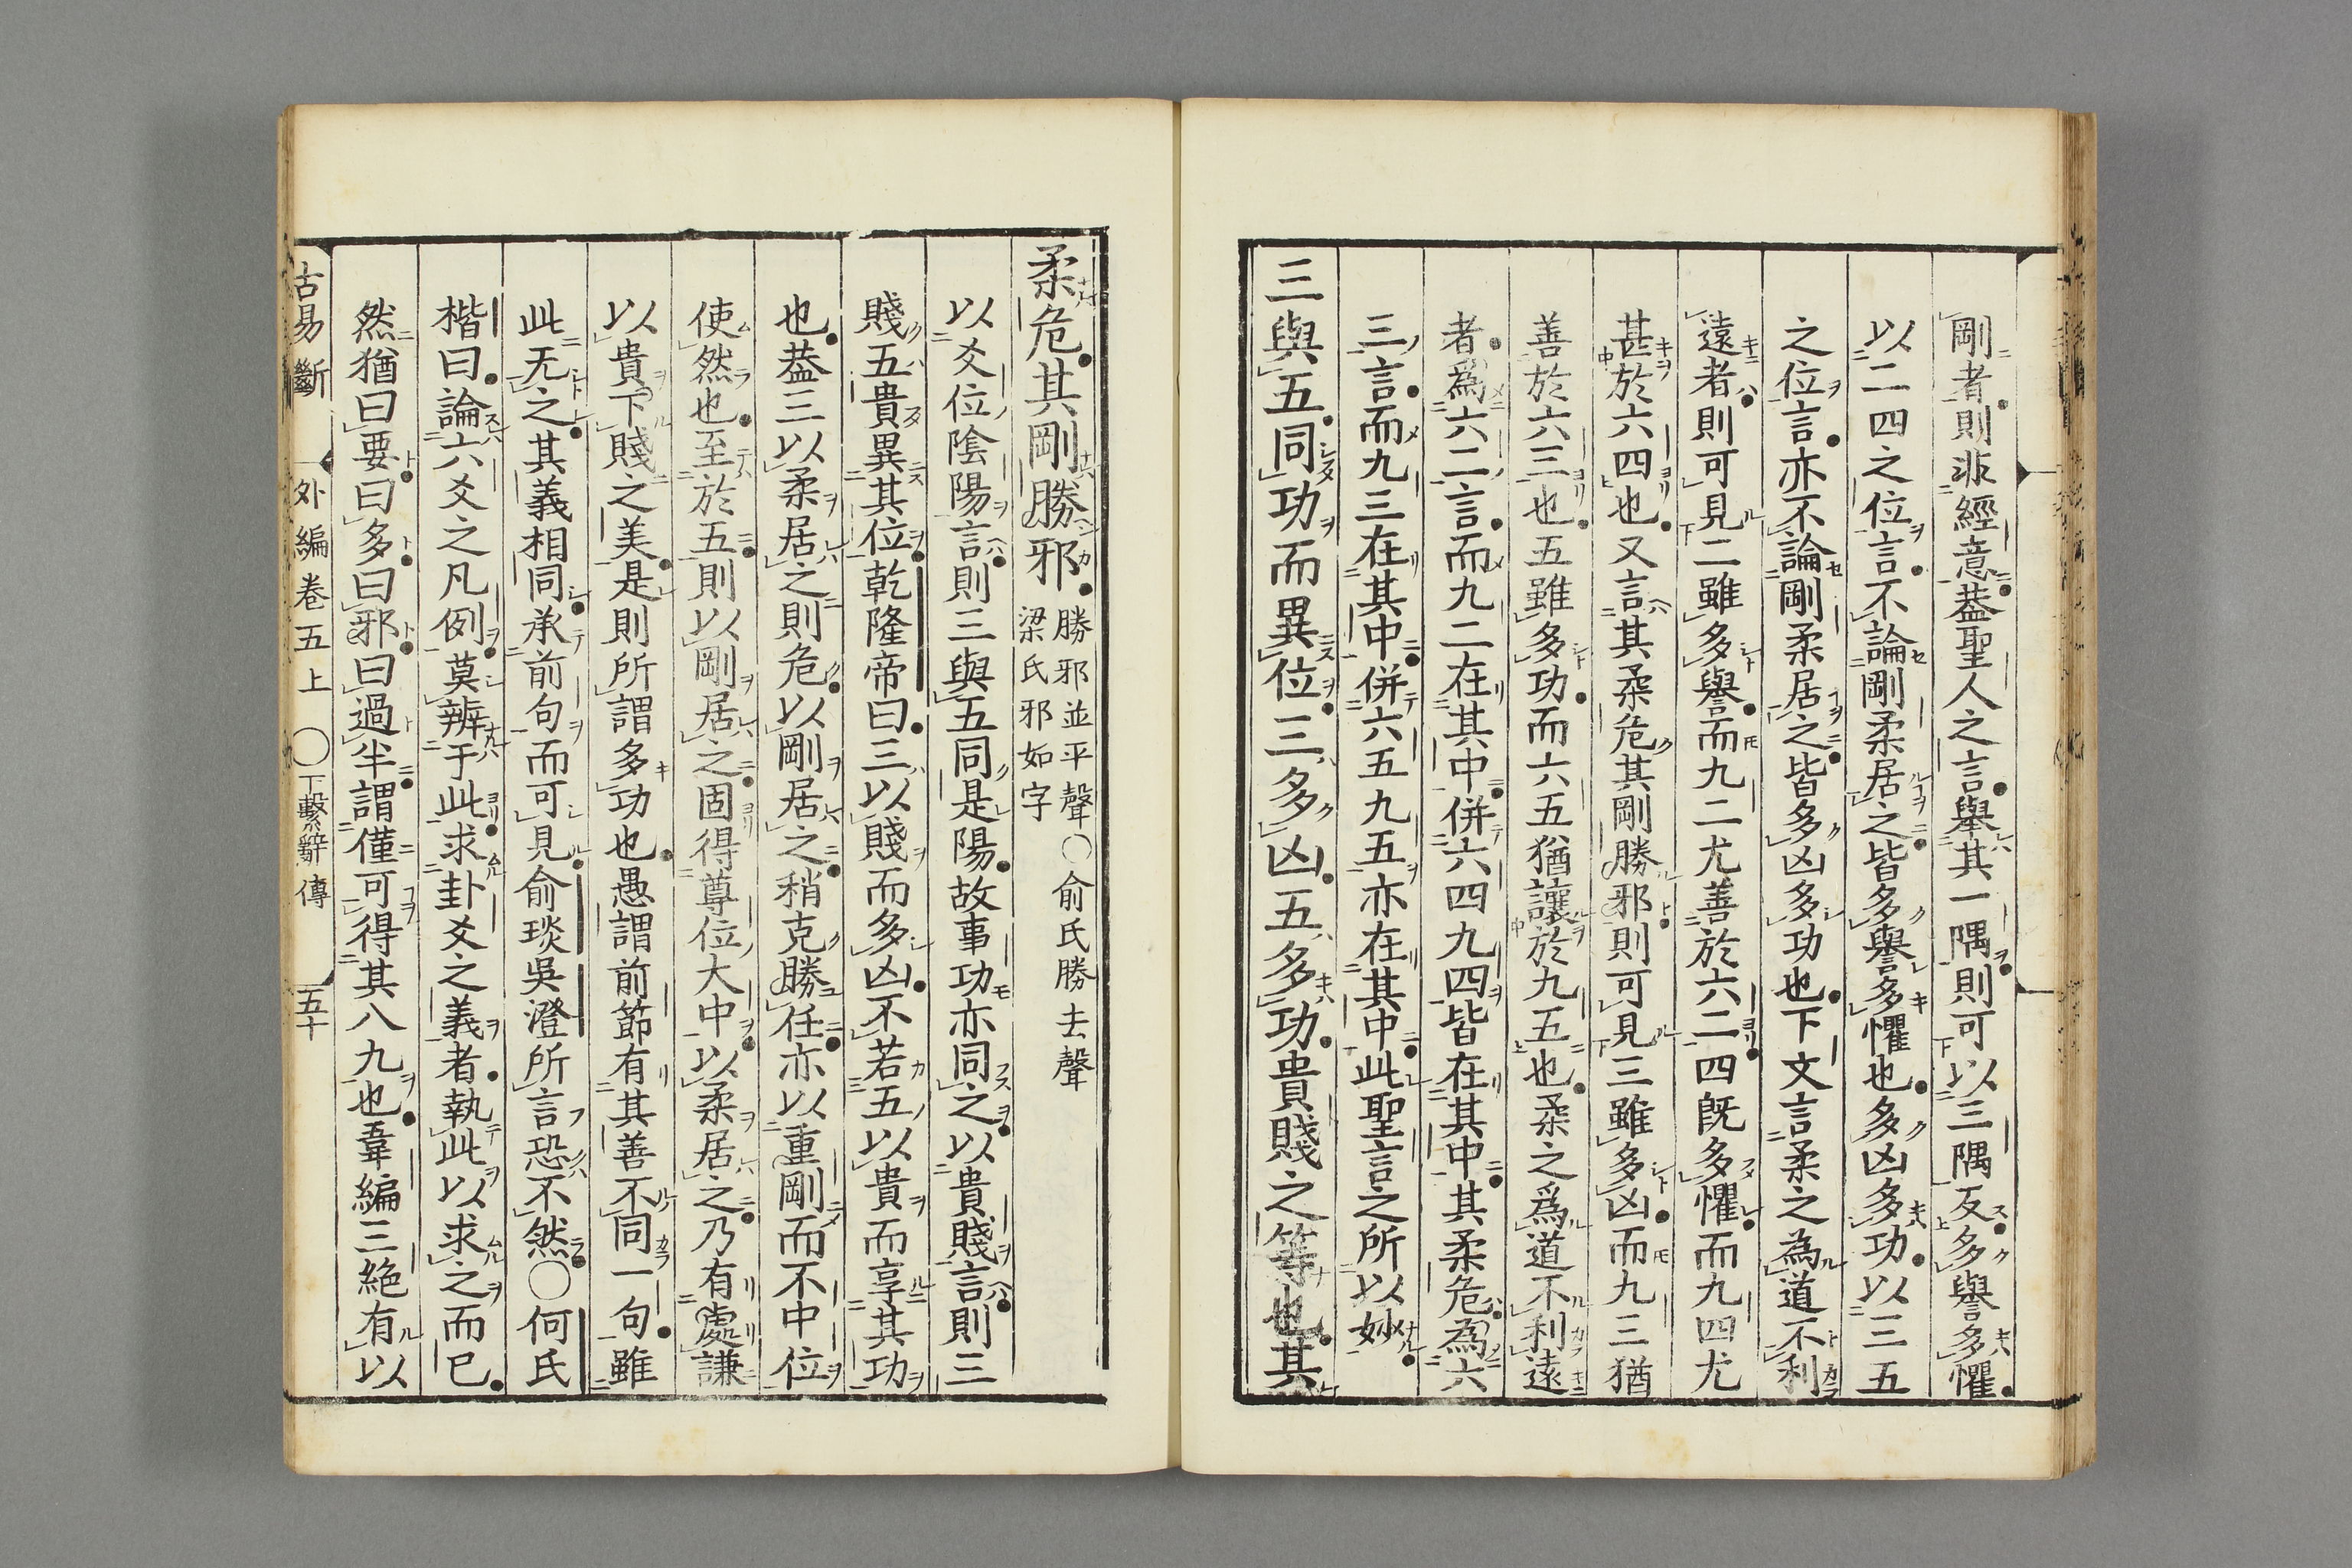 剛者則非經意葢聖人之言舉其一隅則可以三隅反多譽多懼
以二四之位言不論剛柔居之皆多譽多懼也多凶多功以三五
之位言亦不論剛柔居之皆多凶多功也下文言柔之為道不利
遠者則可見二雖多譽而九二尤善於六二四既多懼而九四尤
甚於六四也又言其柔危其剛勝邪則可見三雖多凶而九三猶
善於六三也五雖多功而六五猶讓於九五也柔之爲道不利遠
者爲六二言而九二在其中併六四九四皆在其中其柔危為六
三言而九三在其中併六五九五亦在其中此聖言之所以妙
三與五同功而異位三多凶五多功貴賤之等也其
柔危其剛勝邪
勝邪並平聲○俞氏勝去聲
梁氏邪如字
以爻位陰陽言則三與五同是陽故事功亦同之以貴賤言則三
賤五貴異其位乾隆帝曰三以賤而多凶不若五以貴而享其功
也葢三以柔居之則危以剛居之稍克勝任亦以重剛而不中位
使然也至於五則以剛居之固得尊位大中以柔居之乃有處謙
以貴下賤之美是則所謂多功也愚謂前節有其善不同一句雖
此无之其義相同承前句而可見俞琰吳澄所言恐不然○何氏
楷曰論六爻之凡例莫辨于此求卦爻之義者執此以求之而已
然猶曰要曰多曰邪曰過半謂僅可得其八九也韋編三絶有以
古易斷 外編卷五上 ○下繫辭傳 五十